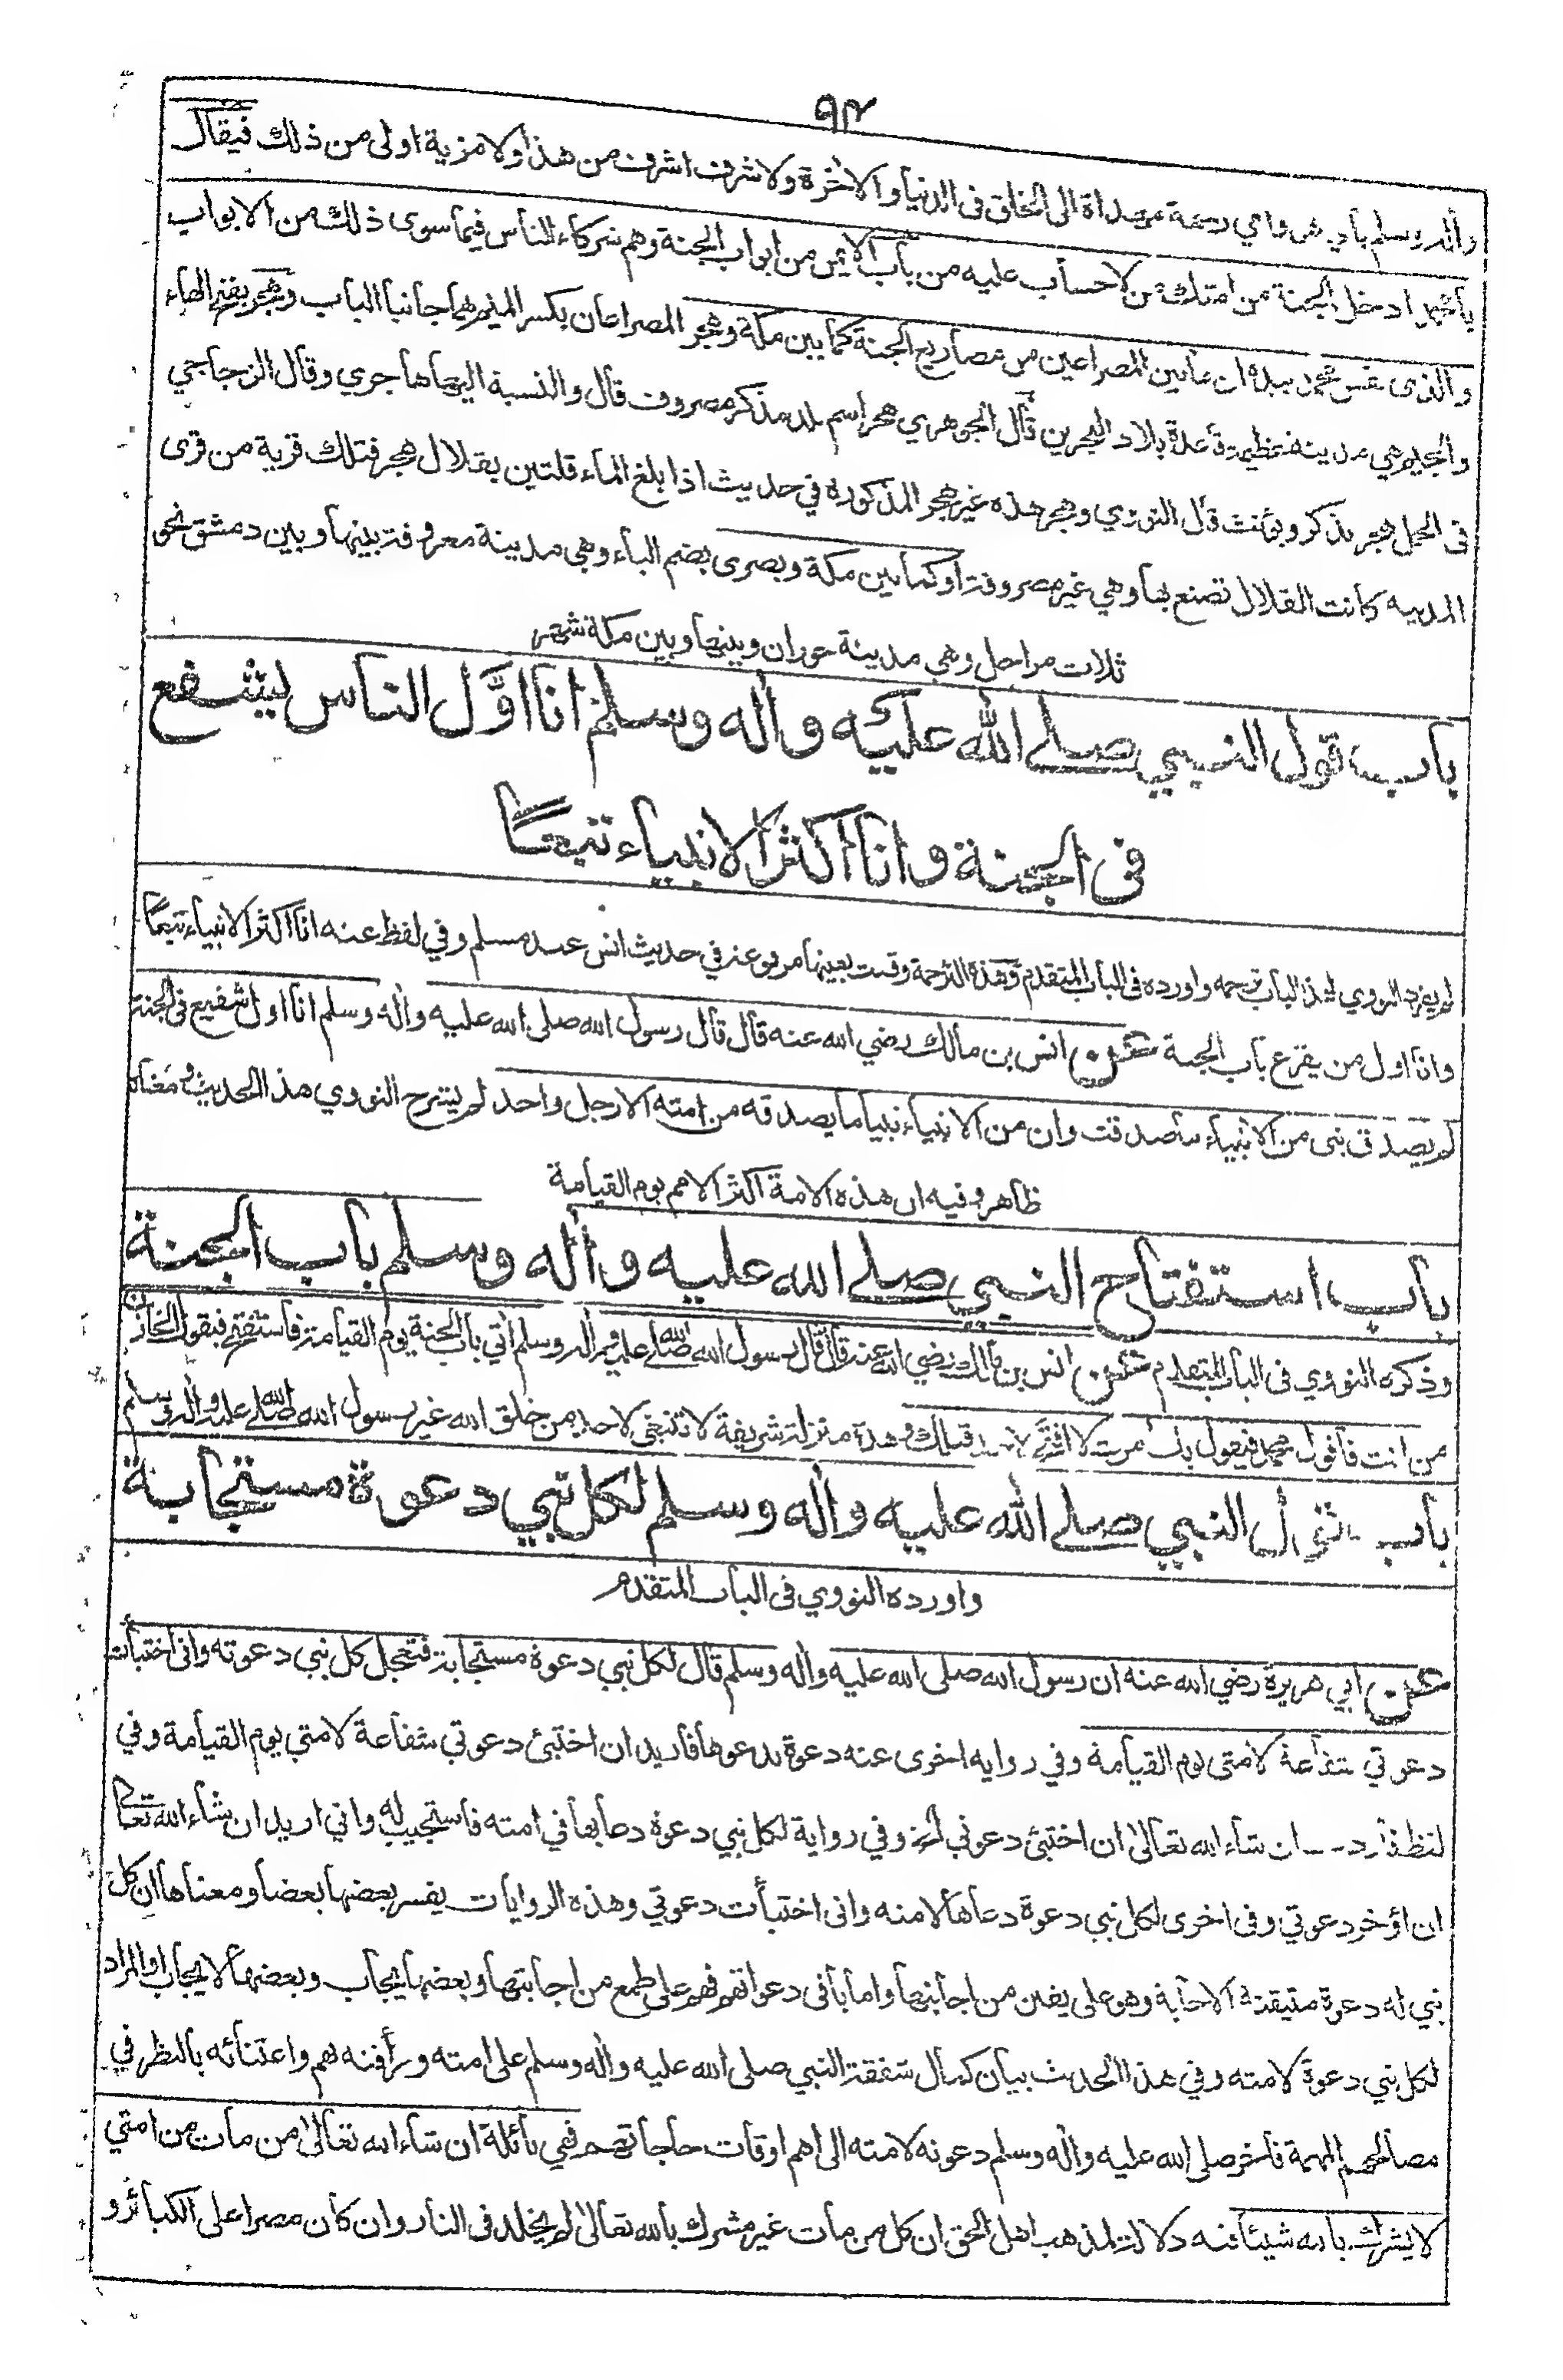 ٩٢
وأله وسلم بأي رحمة مهداة الى الخلق فى الدنيا والاخرة ولا شرف اشرف من هذا ولا مزية اولى من ذلك فيقال
يا محمد ادخل الجنة من امتك من لا حساب عليه من باب الايمن من ابواب الجنة وهم شركاء الناس فيما سوى ذلك من الابواب
والذى نفس محمد بيده ان ما بين المصراعين من مصاريع الجنة كما بين مكة وهجر المصراعان بكسر الميم هما جانبا الباب وهجر بفتح الهاء
والجيم هي مدينة عظيمة قاعدة بلاد البحرين قال الجوهري هجر اسم بلد مذكر مصروف قال والنسبة اليها هاجري وقال الزجاجي
فى الجمل هجر يذكر ويؤنث قال النووي وهجر هذه غير هجر المذكورة في حديث اذا بلغ الماء قلتين بقلال هجر فتلك قرية من قرى
المدينه كانت القلال تصنع بها وهي غير مصروفة او كما بين مكة وبصرى بضم الباء وهي مدينة معروفة بينها وبين دمشق نحو
ثلاث مراحل وهي مدينة حوران وبينها وبين مكة شهر
باب قول النبي صلے الله عليه وأله وسلم انا اوَّل الناس يشفع
فى الجنة وانا اكثر الانبياء تبعًا
لم يفرد النووي لهذا الباب ترجمه واورده فى الباب المتقدم وهذه الترجمة وقعت بعينها مرفوعة في حديث انس عند مسلم وفي لفظ عنه انا اكثر الانبياء تبعًا
وانا اول من يقرع باب الجنة عن انس بن مالك رضي الله عنه قال قال رسول الله صلى الله عليه وأله وسلم انا اول شفيع فى الجنة
لم يصدق نبى من الانبياء ما صدقت وان من الانبياء نبيا ما يصدقه من امته الا رجل واحد لم يشرح النووي هذا الحديث ومعناه
ظاهر وفيه ان هذه الامة اكثر الامم يوم القيامة
باب استفتاح النبي صلے الله عليه وأله وسلم باب الجنة
وذكره النووي فى الباب المتقدم عن انس بن مالك رضي الله عنه قال قال رسول الله صلے الله عليه وأله وسلم أتي باب الجنة يوم القيامة فاستفتح فيقول الخازن
من انت فأقول محمد فيقول بك امرت لا افتح لاحد قبلك وهذه منزلة شريفة لا تنبغي لاحد من خلق الله غير رسول الله صلے الله عليه وأله وسلم
باب قول النبي صلے الله عليه وأله وسلم لكل نبي دعوة مستجابة
واورده النووي فى الباب المتقدم
عن ابي هريرة رضي الله عنه ان رسول الله صلى الله عليه وأله وسلم قال لكل نبي دعوة مستجابة فتعجل كل نبي دعوته وانى اختبأت
دعوتي شفاعة لامتى يوم القيامة وفي روايه اخرى عنه دعوة يدعوها فأريد ان اختبئ دعوتي شفاعة لامتي يوم القيامة وفي
لفظ فأردت ان شاء الله تعالى ان اختبئ دعوتي الخ وفي رواية لكل نبي دعوة دعا بها في امته فاستجيب له واني اريد ان شاء الله تعالى
ان اؤخر دعوتي وفى اخرى لكل نبي دعوة دعاها لامته وانى اختبأت دعوتي وهذه الروايات يفسر بعضها بعضا ومعناها ان كل
نبي له دعوة متيقنة الاجابة وهو على يقين من اجابتها واما باقى دعواتهم فهم على طمع من اجابتها وبعضها يجاب وبعضها لا يجاب والمراد
لكل نبي دعوة لامته وفي هذا الحديث بيان كمال شفقة النبي صلى الله عليه وأله وسلم على امته ورأفته بهم واعتنائه بالنظر في
مصالحهم المهمة فأخر صلى الله عليه وأله وسلم دعوته لامته الى اهم اوقات حاجاتهم فهي نائلة ان شاء الله تعالى من مات من امتي
لا يشرك بالله شيئا فيه دلالة لمذهب اهل الحق ان كل من مات غير مشرك بالله تعالى لم يخلد فى النار وان كان مصرا على الكبائر و